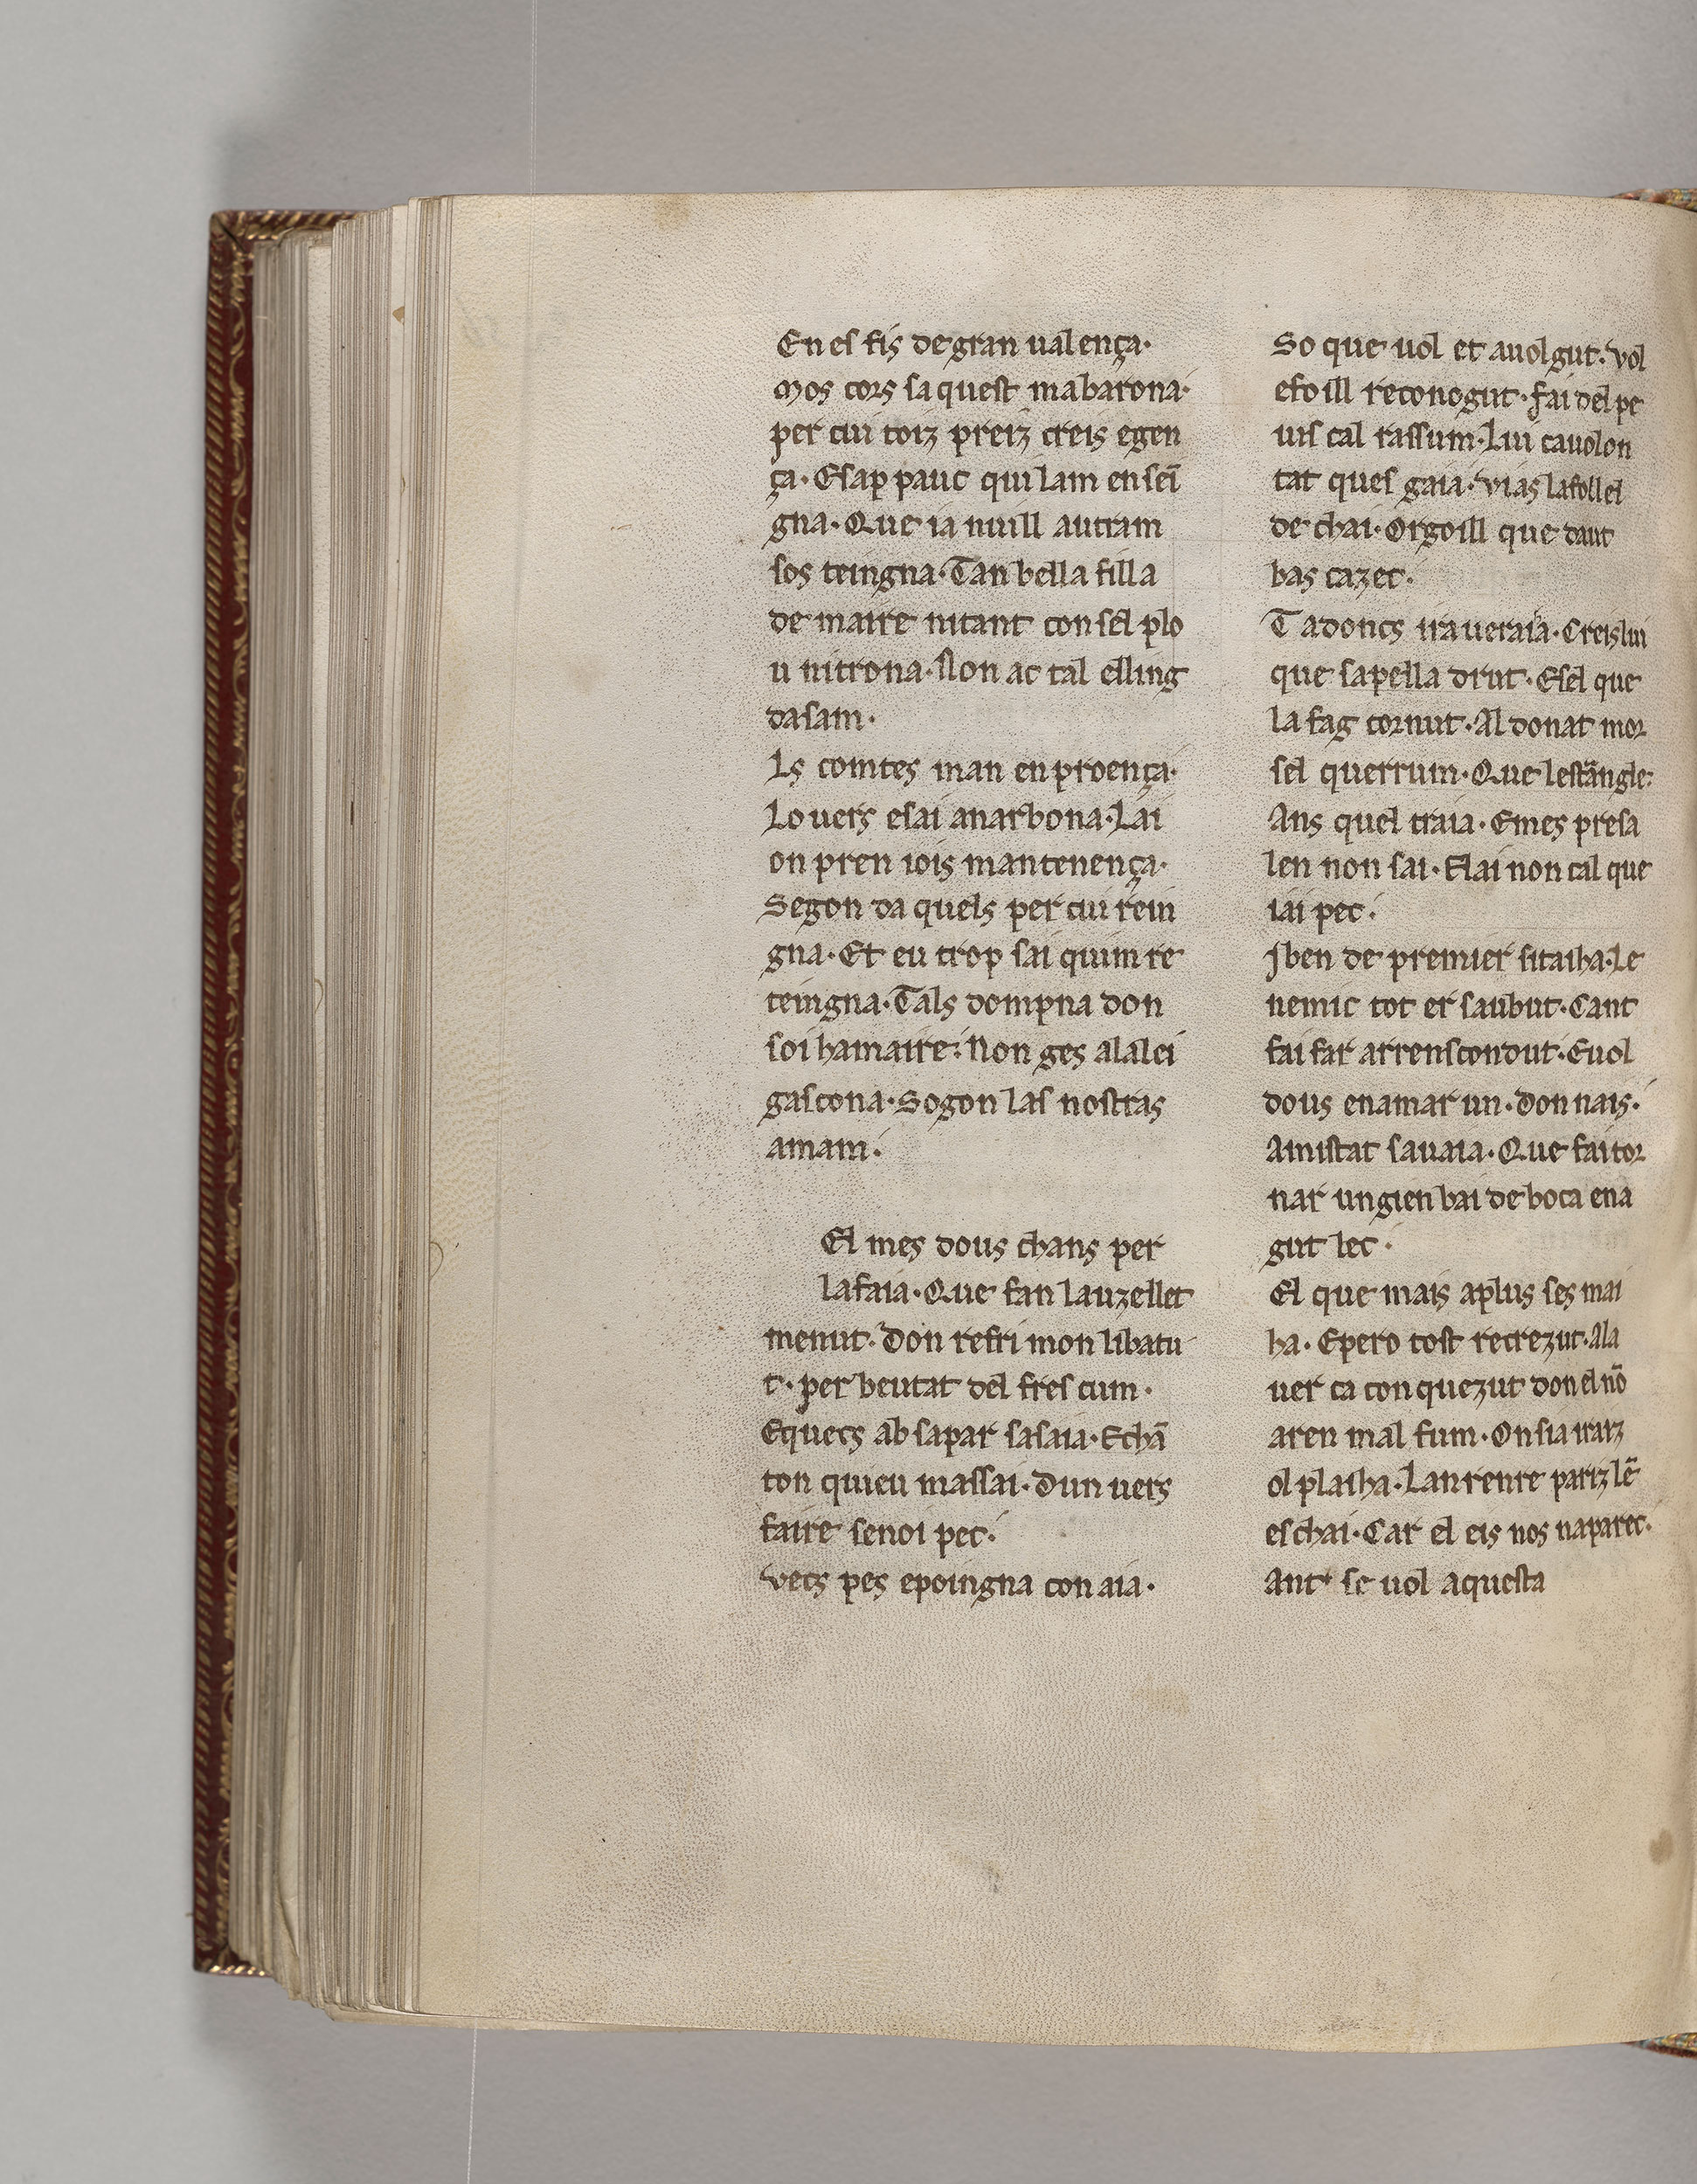 En es fis de gran ualença·
Mos cors sa quest ma barona·
per cui toiz preiz creis e gen
ça· Esap pauc qui lam en sei̅
gna· Que ia nuill autram
sos teingna· Tan bella filla
de maire ni tant con sel plo
u ni trona· Non ac tal el ling
dasam·
Ls comtes man en proença·
Lo uers e sai a narbona· Lai
on pren iois mantenença·
Segon da quels per cui rein
gna· Et eu trop sai quim re
teingna· Tals dompna don
soi hamaire· Non ges a la lei
gascona· Sogon las nostras
amam·
El mes dous chans per
la faia· Que fan lauzellet
menut· Don refrimon li batu
t· per beutat del fres cum·
E quecs ab sa par sasaia· E cha̅
ton quieu massai· Dun uers
faire senoi pec·
Vecs pes e poingna con aia·
So que uol et a uolgut· Vol
e fo ill reconogut· Fai del pe
uis cal rassum· Lui ca uolon
tat ques gaia· Vias la follel
dechai· Orgoill que daut
bas cazec·
T adoncs ira ueraia· Creis lui
que sapella drut· E sel que
la fag cornut· Al donat mor
sel querrum· Que lesta̅ngle·
Ans quel traia· E mes presa
len non sai· E lai non cal que
iai pec·
I ben de premier sitaiha· Le
nemic tot er saubut· Cant
fai far arrenscondut· E uol
dous en amar un· Don nais·
Amistat sauaia· Que fai tor
nar un gien bai de boca en a
gut lec·
El que mais a plus ses mai
ha· E pero tost recrezut· A la
uer ca conquezut don el no̅
a ren mal fum· On sia iraiz
ol plaiha· Lan renre pariz le̅
es chai· Car el eis nos naparec·
Ant se uol aquesta